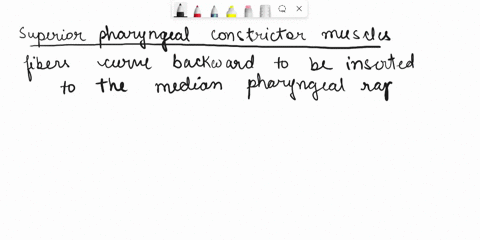 Superior pharyngeal constrictor muscles
fibers curve backward to be inserted
to the median pharyngeal rap